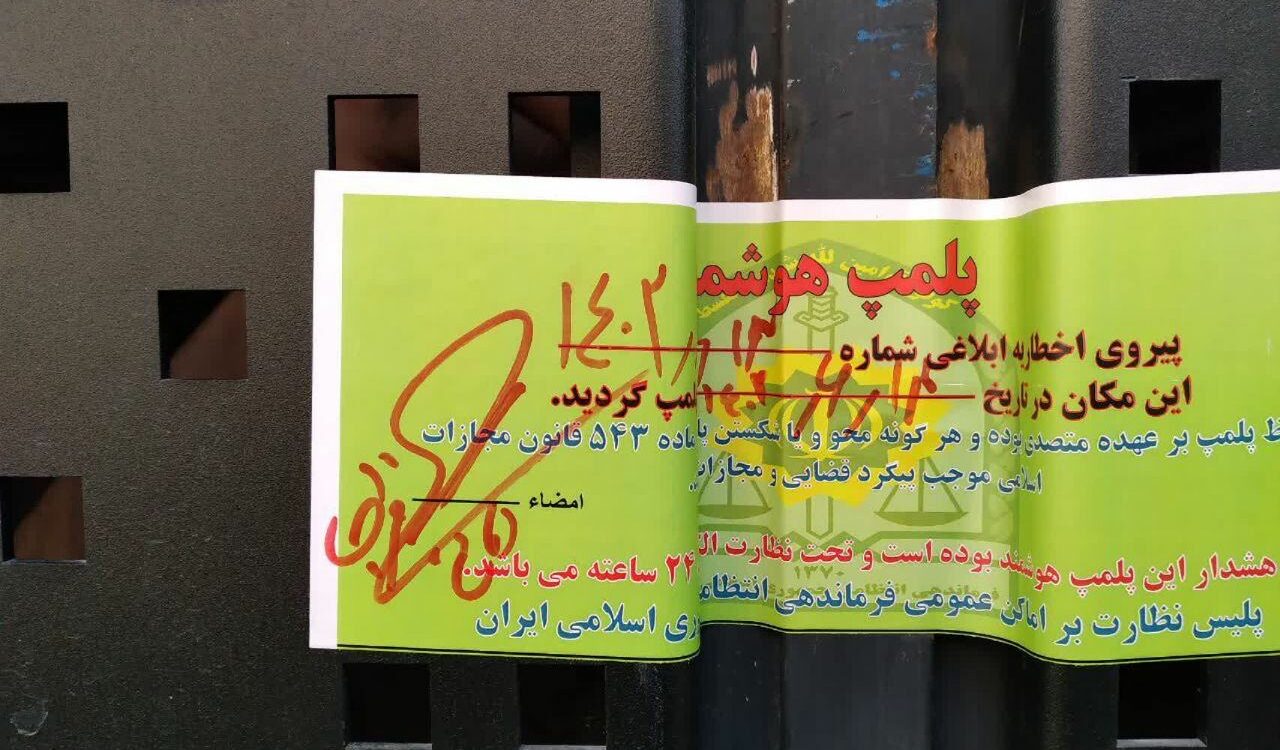 پلمپ هوشم
پیروی اخطاریه ابلاغی شماره
این مکان در تاریخ ۱۴۰۲ / ۶ / ۱۲ لمپ گردید.
ظ پلمپ بر عهده متصدی بوده و هر کونه محو و یا شکستن پا ماده ۵۴۳ قانون مجازات
اسلامی موجب پیکرد قضایی و مجازات
امضاء
هشدار این پلمپ هوشمند بوده است و تحت نظارت الک ۲۴ ساعته می باشد.
پلیس نظارت بر اماکن عمومی فرماندهی انتظام ری اسلامی ایران
۱۳۷۰